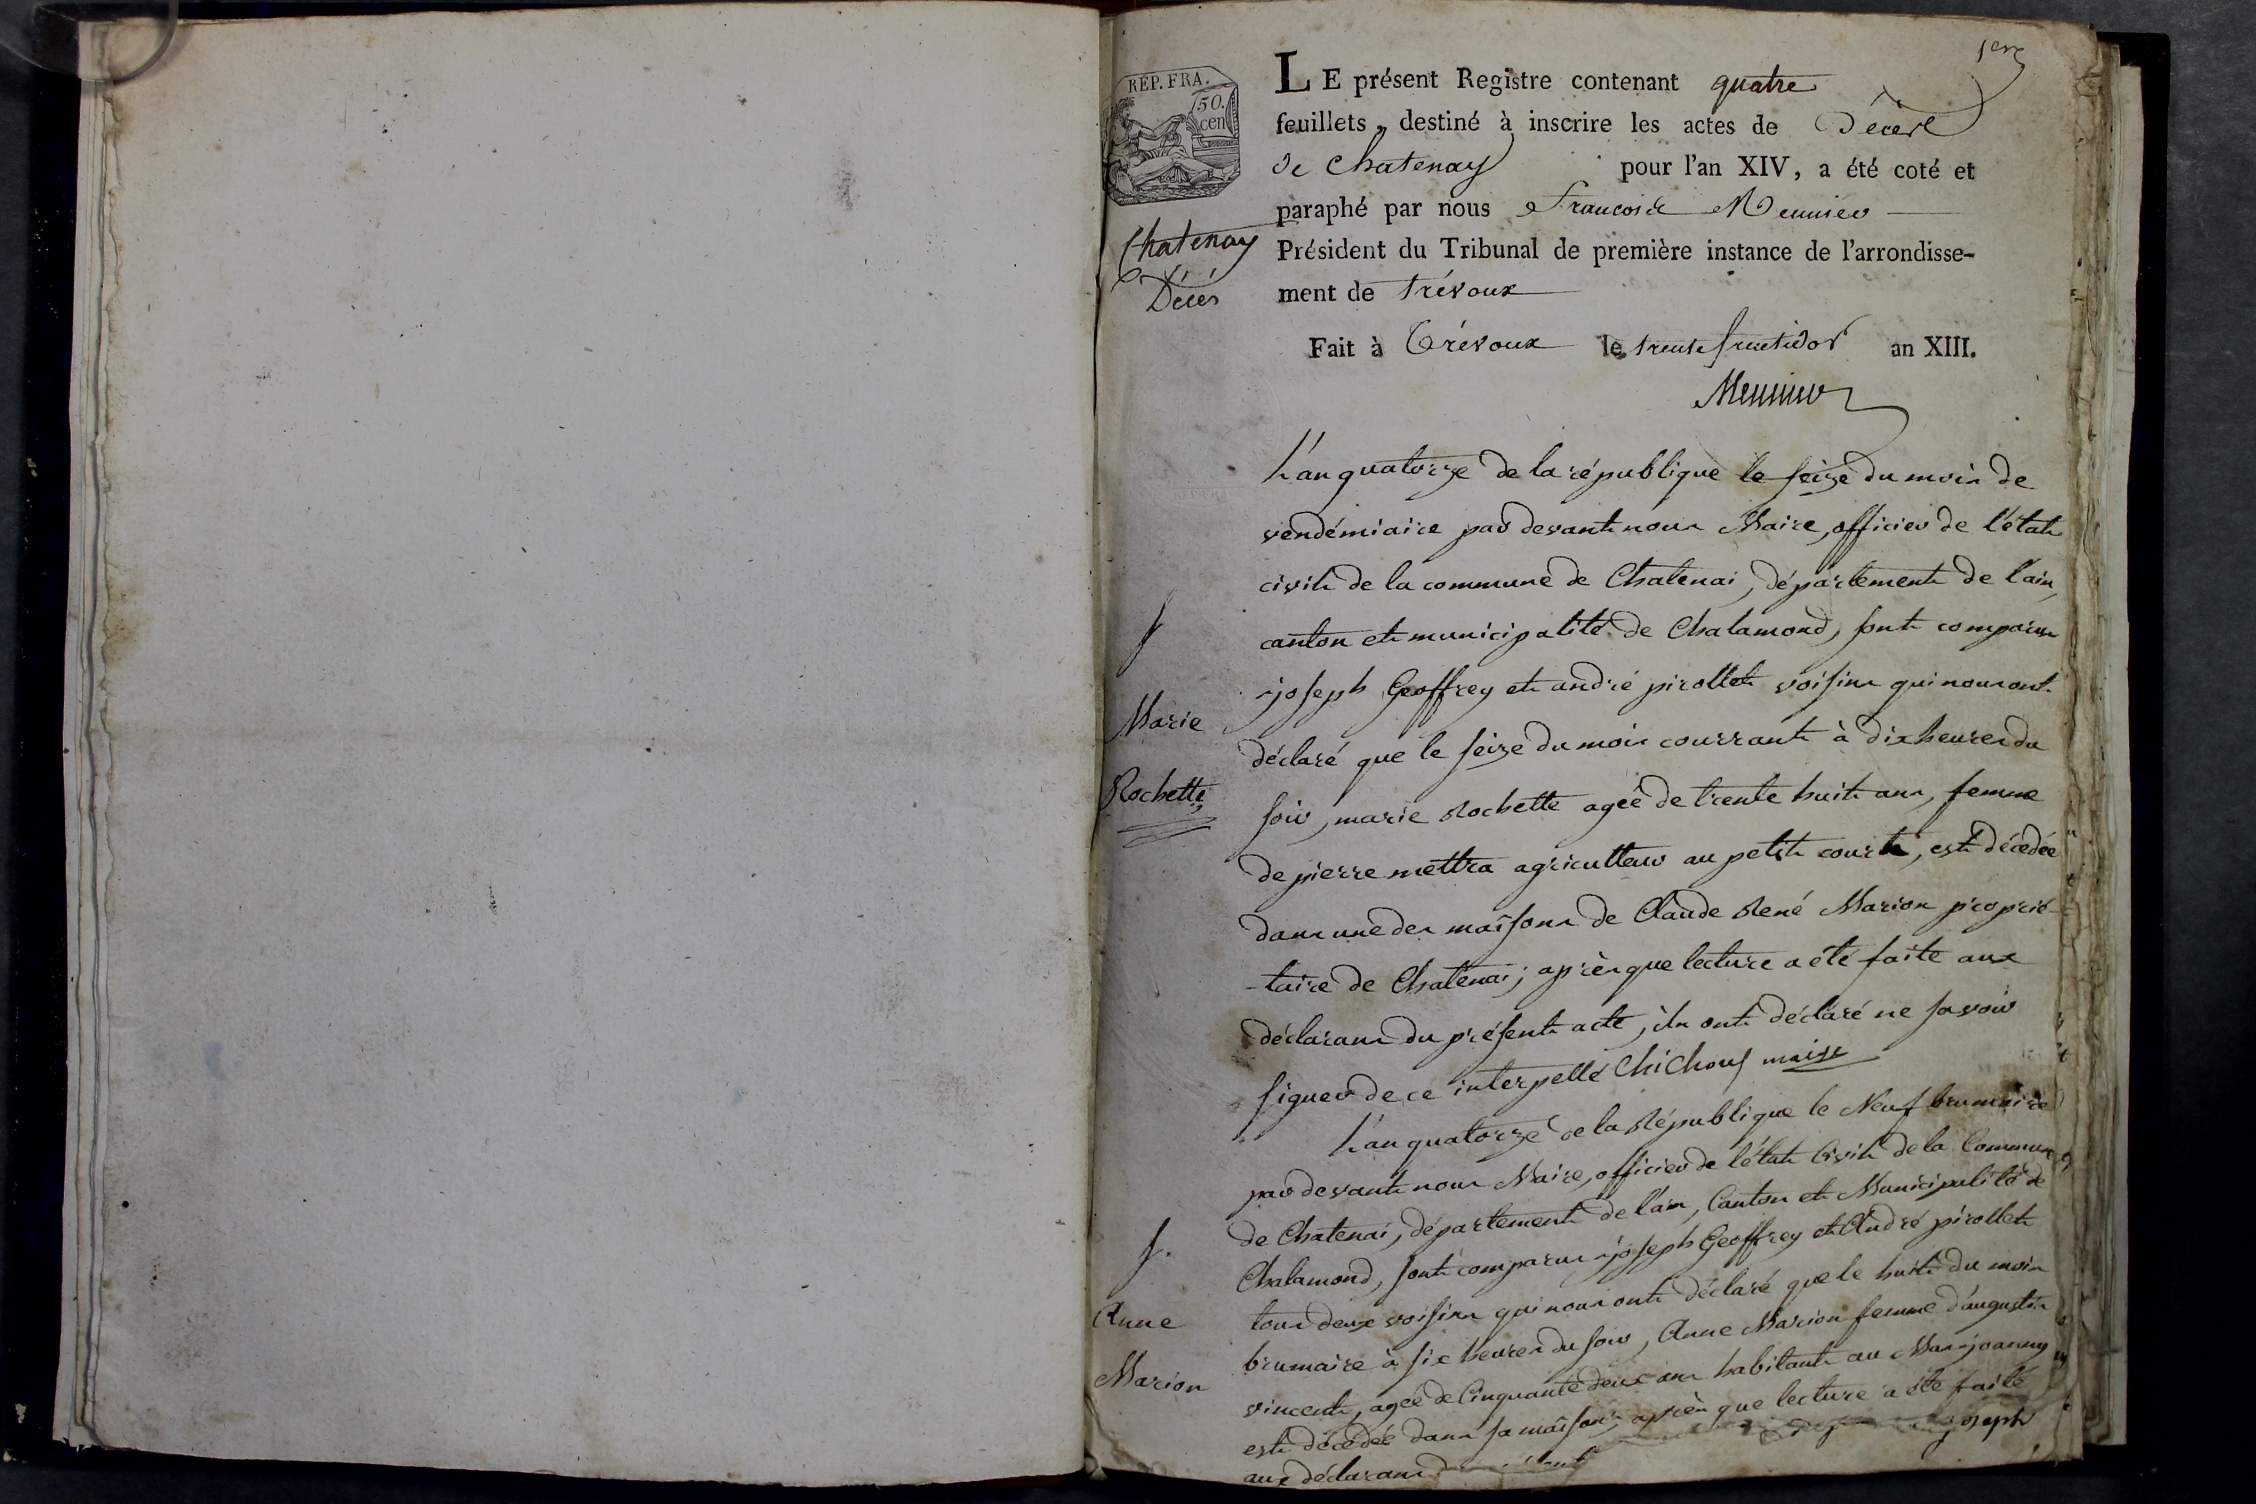 1er
REP. FRA.
50.
cen
LE présent Registre contenant quatre
feuillets, destiné à inscrire les actes de Décès
de Chatenay pour l'an XIV, a été coté et
paraphé par nous François Meunier
Président du Tribunal de première instance de l'arrondisse-
ment de Trévoux
Fait à Trévoux le trente fructidor an XIII.
Meunier
Chatenay
Décés
L'an quatorze de la république le seize du mois de
vendémiaire par devant nous Maire, officier de l'état
civil de la commune de Chatenai, département de l'ain,
canton et municipalité de Chalamond, sont comparus
joseph Geoffrey et andré pirollet voisins qui nous ont
déclaré que le seize du mois courrant à dix heures du
soir, marie Rochette agée de trente huit ans, femme
de pierre mettra agriculteur au petit court, est décédée
dans une des maisons de Claude René Marion proprié-
-taire de Chatenai; après que lecture a été faite aux
déclarans du présent acte, ils ont déclaré ne savoir
signer de ce interpellé Chichoux maire
Marie
Rochette
L'an quatorze de la République le Neuf brumaire
par devant nous Maire, officier de l'état Civil de la Commune
de Chatenai, département de l'ain, Canton et Municipalité de
Chalamond, sont comparus joseph Geoffrey et André pirollet
tous deux voisins qui nous ont déclaré que le huit du mois
brumaire à six heures du soir, Anne Marion femme d'augustin
vincent, agée de Cinquante deux ans habitante au Mas-joanny
est décédée dans sa maison, après que lecture a été faite
aux déclarans joseph
Anne
Marion